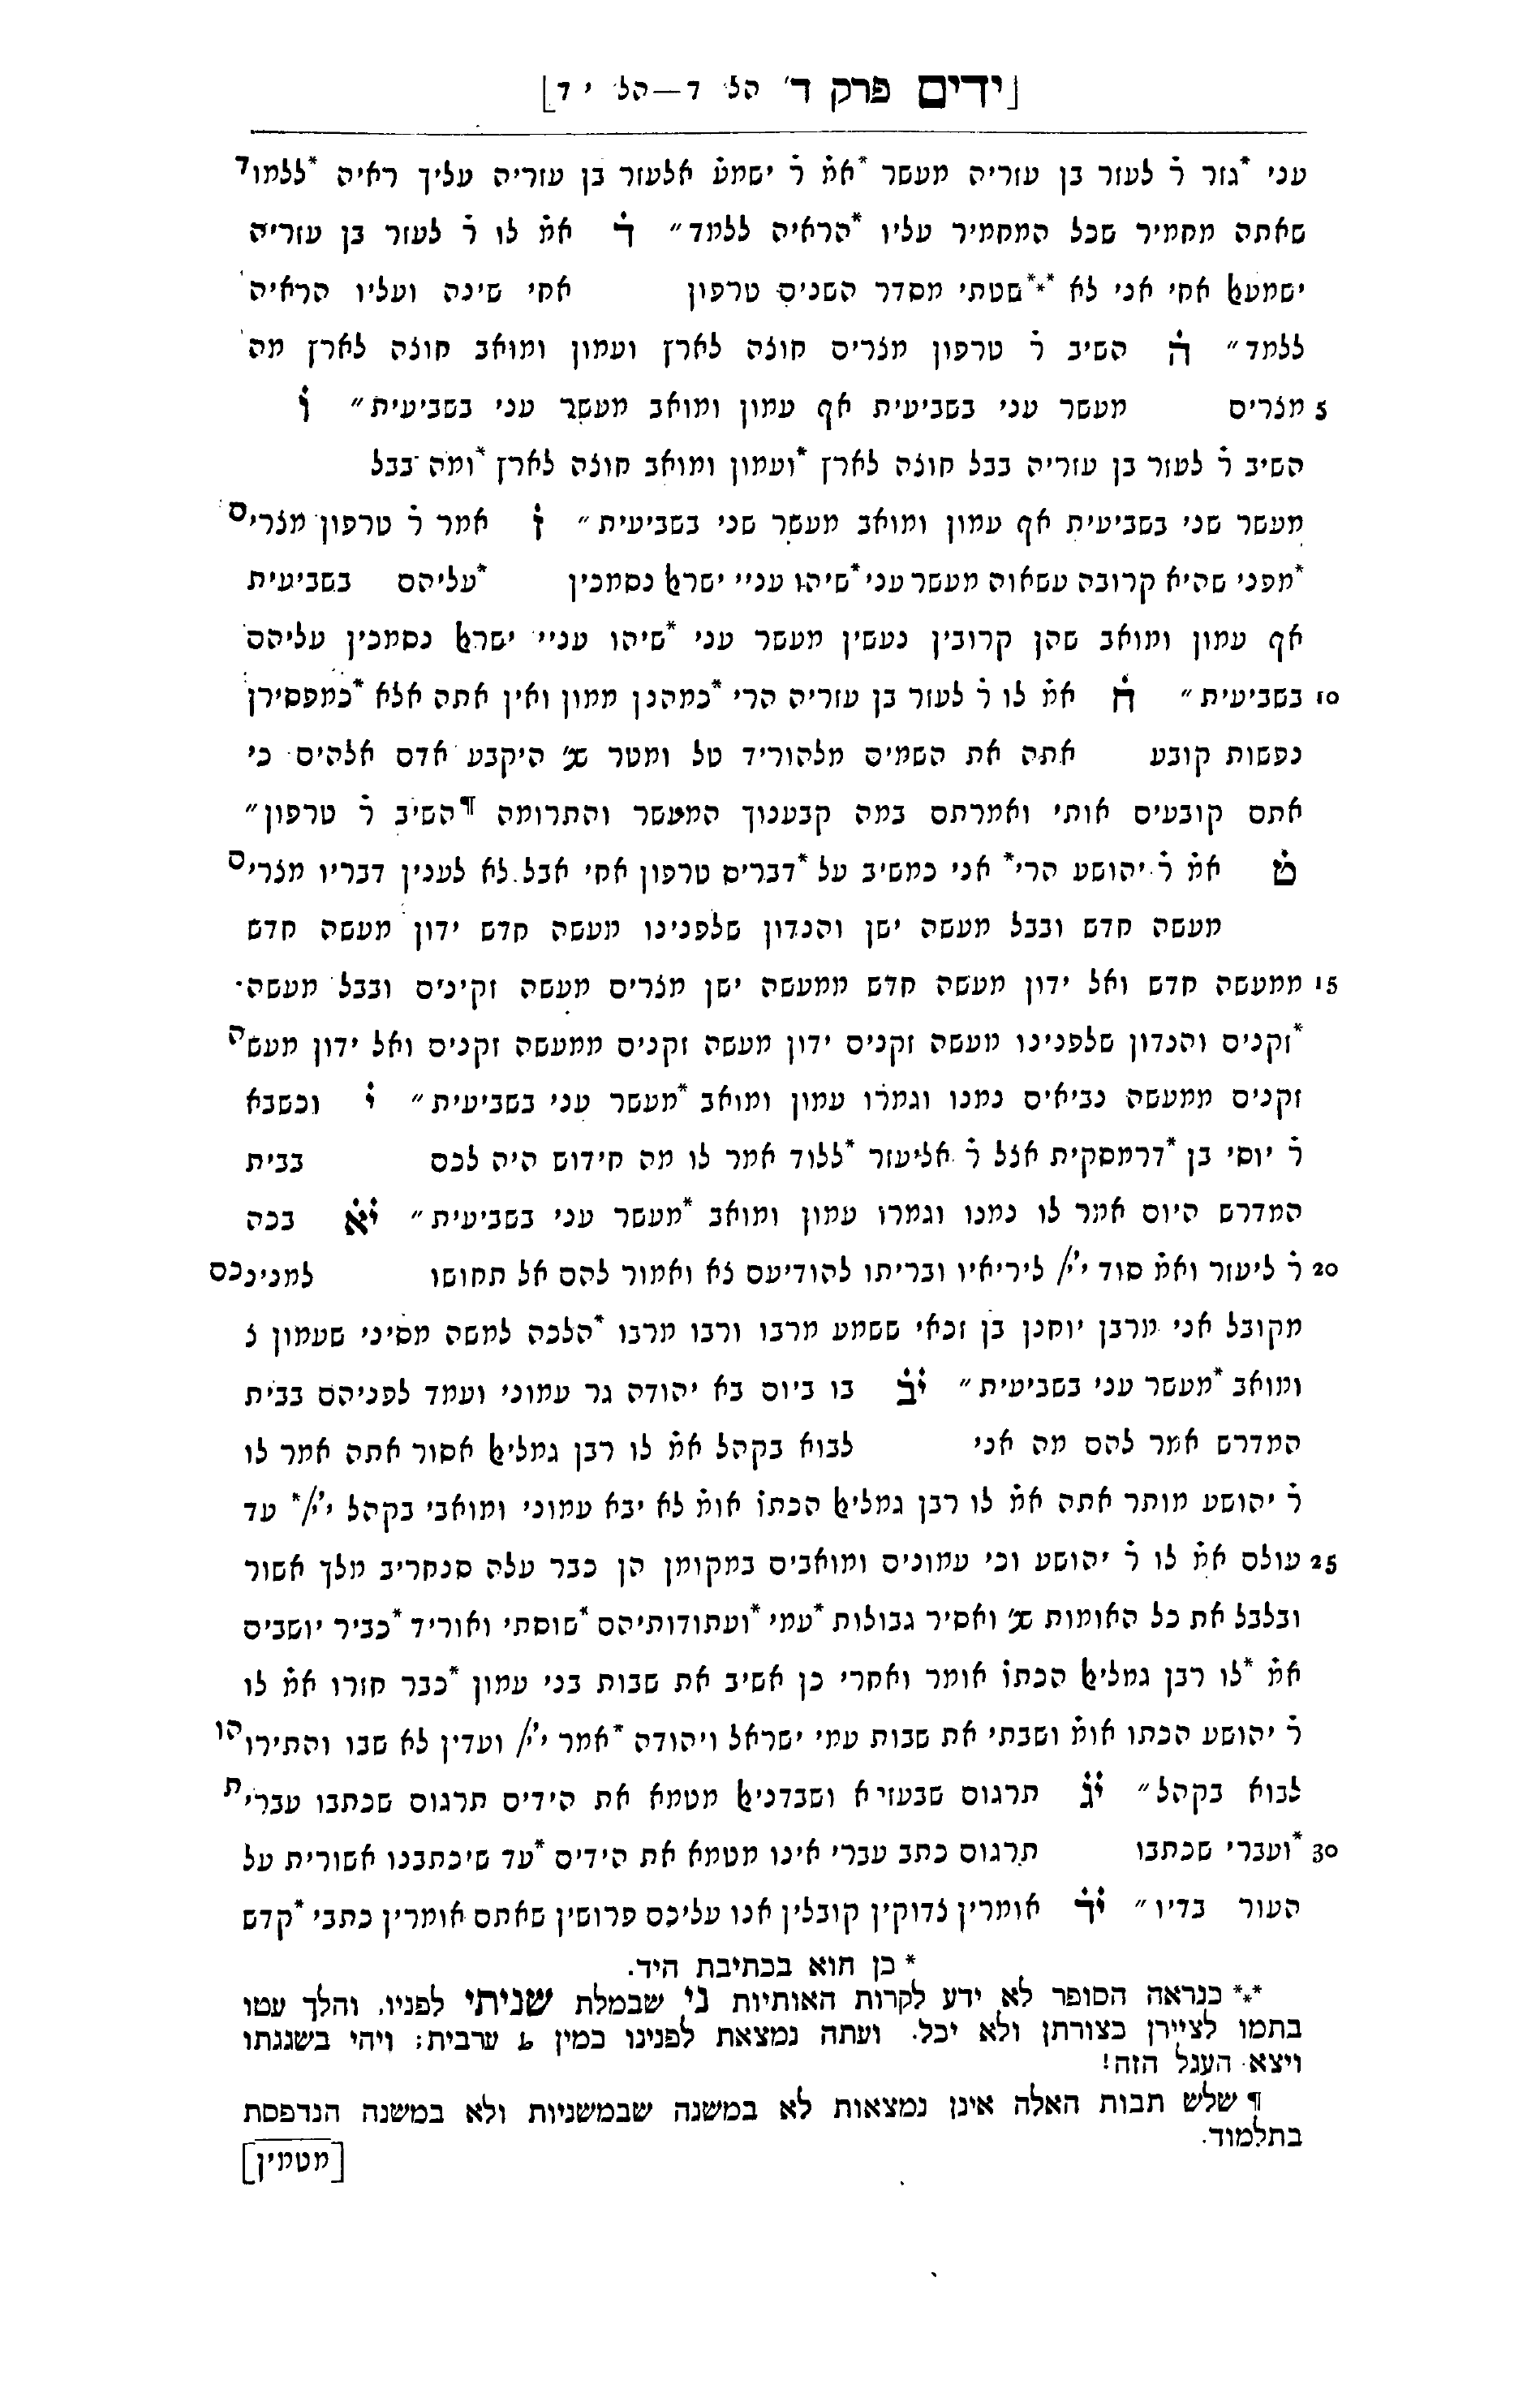 [ידים פרק ד׳ הל׳ ד—הל׳ י ד]
עני *גזר ר׳ לעזר בן עזריה מעשר *אמ׳ ר׳ ישמע׳ אלעזר בן עזריה עליך ראיה *ללמוד
שאתה מחמיר שכל המחמיר עליו *הראיה ללמד״ ד אמ׳ לו ר׳ לעזר בן עזריה
ישמעאל אחי אני לא *⁎*שטתי מסדר השנים טרפון אחי שינה ועליו הראיה
ללמד״ ה השיב ר׳ טרפון מצרים חוצה לארץ ועמון ומואב חוצה לארץ מה
5 מצרים מעשר עני בשביעית אף עמון ומואב מעשר עני בשביעית״ ו
השיב ר׳ לעזר בן עזריה בבל חוצה לארץ *ועמון ומואב חוצה לארץ *ומה בבל
מעשר שני בשביעית אף עמון ומואב מעשר שני בשביעית״ ז אמר ר׳ טרפון מצרים
*מפני שהיא קרובה עשאוה מעשר עני *שיהו עניי ישראל נסמכין *עליהם בשביעית
אף עמון ומואב שהן קרובין נעשין מעשר עני *שיהו עניי ישראל נסמכין עליהם
10 בשביעית״ ח אמ׳ לו ר׳ לעזר בן עזריה הרי *כמהנן ממון ואין אתה אלא *כמפסירן
נפשות קובע אתה את השמים מלהוריד טל ומטר שנ׳ היקבע אדם אלהים כי
אתם קובעים אותי ואמרתם במה קבענוך המעשר והתרומה ¶השיב ר׳ טרפון״
ט אמ׳ ר׳ יהושע הרי* אני כמשיב על *דברים טרפון אחי אבל לא לענין דבריו מצרים
מעשה חדש ובבל מעשה ישן והנדון שלפנינו מעשה חדש ידון מעשה חדש
15 ממעשה חדש ואל ידון מעשה חדש ממעשה ישן מצרים מעשה זקינים ובבל מעשה
*זקנים והנדון שלפנינו מעשה זקנים ידון מעשה זקנים ממעשה זקנים ואל ידון מעשה
זקנים ממעשה נביאים נמנו וגמרו עמון ומואב *מעשר עני בשביעית״ י וכשבא
ר׳ יוסי בן *דרמסקית אצל ר׳ אליעזר *ללוד אמר לו מה חידוש היה לכם בבית
המדרש היום אמר לו נמנו וגמרו עמון ומואב *מעשר עני בשביעית״ יא בכה
20 ר׳ ליעזר ואמ׳ סוד י׳י׳/ ליריאיו ובריתו להודיעם צא ואמור להם אל תחושו למנינכם
מקובל אני מרבן יוחנן בן זכאי ששמע מרבו ורבו מרבו *הלכה למשה מסיני שעמון צ
ומואב *מעשר עני בשביעית״ יב בו ביום בא יהודה גר עמוני ועמד לפניהם בבית
המדרש אמר להם מה אני לבוא בקהל אמ׳ לו רבן גמליאל אסור אתה אמר לו
ר׳ יהושע מותר אתה אמ׳ לו רבן גמליאל הכתו׳ אומ׳ לא יבא עמוני ומואבי בקהל י׳י׳/* עד
25 עולם אמ׳ לו ר׳ יהושע וכי עמונים ומואבים במקומן הן כבר עלה סנחריב מלך אשור
ובלבל את כל האומות שנ׳ ואסיר גבולות *עמי *ועתודותיהם *שוסתי ואוריד *כביר יושבים
אמ׳ *לו רבן גמליאל הכתו׳ אומר ואחרי כן אשיב את שבות בני עמון *כבר חזרו אמ׳ לו
ר׳ יהושע הכתו אומ׳ ושבתי את שבות עמי ישראל ויהודה *אמר י׳י׳/ ועדין לא שבו והתירוהו
לבוא בקהל״ יג תרגום שבעזיא ושבדניאל מטמא את הידים תרגום שכתבו עברית
30 *ועברי שכתבו תרגום כתב עברי אינו מטמא את הידים *עד שיכתבנו אשורית על
העור בדיו״ יד אומרין צדוקין קובלין אנו עליכם פרושין שאתם אומרין כתבי *קדש
* כן הוא בכתיבת היד.
*⁎* כנראה הסופר לא ידע לקרות האותיות ני שבמלת שניתי לפניו, והלך עטו
בתמו לציירן כצורתן ולא יכל. ועתה נמצאת לפנינו כמין ط ערבית; ויהי בשגגתו
ויצא העגל הזה!
¶ שלש תבות האלה אינן נמצאות לא במשנה שבמשניות ולא במשנה הנדפסת
בתלמוד.
[מטמין]